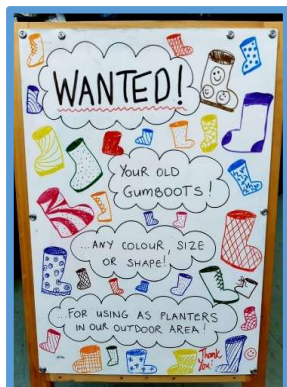 WANTED!
YOUR OLD
GUMBOOTS!
...ANY COLOUR, SIZE
OR SHAPE!
...FOR USING AS PLANTERS
IN OUR OUTDOOR AREA!
Thank
You!